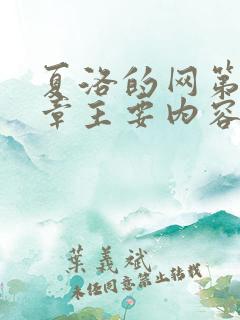 夏洛的网第
章主要内容
葉義斌
未经同意禁止转载